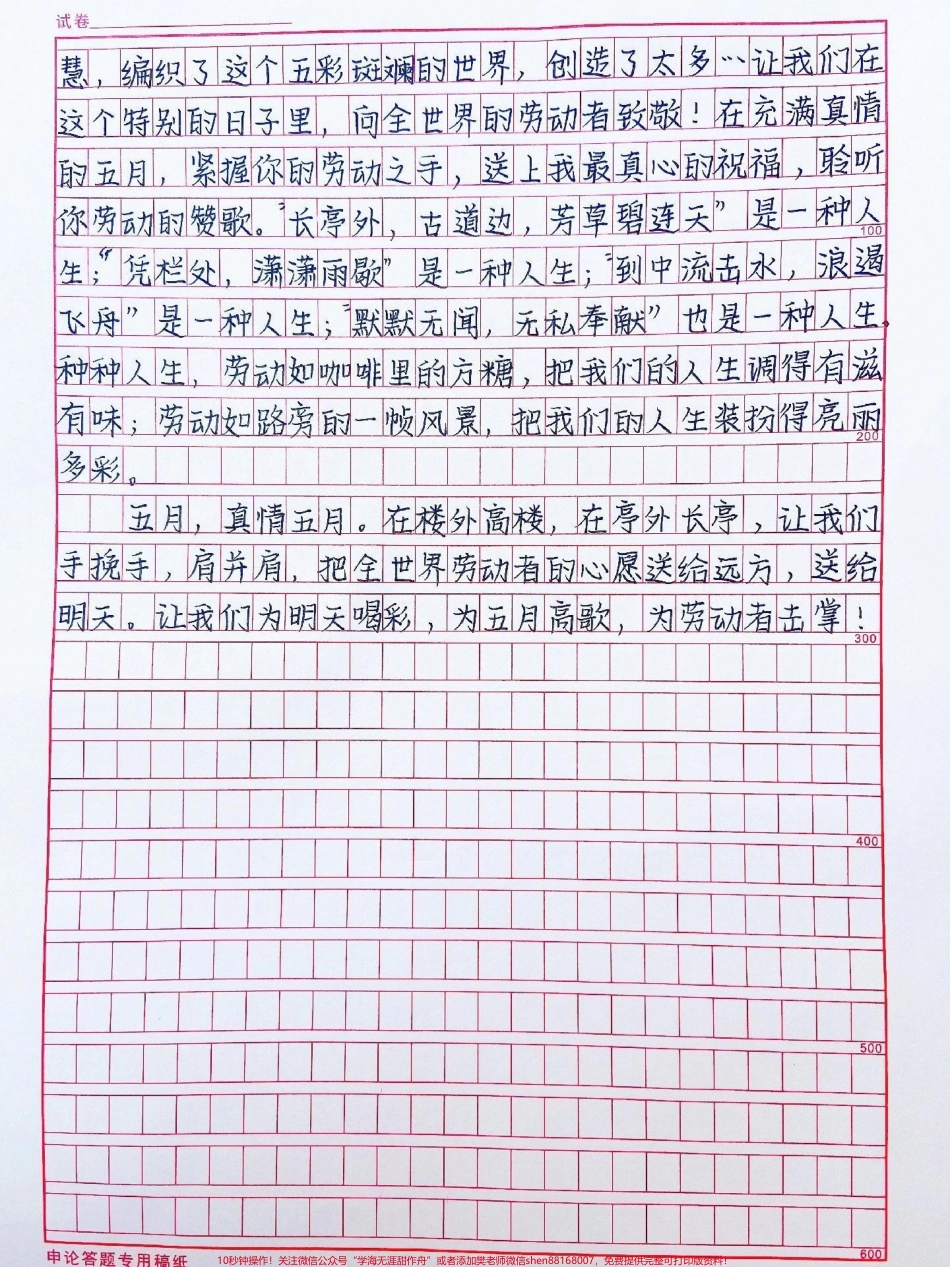 试卷
慧，编织了这个五彩斑斓的世界，创造了太多…让我们在
这个特别的日子里，向全世界的劳动者致敬！在充满真情
的五月，紧握你的劳动之手，送上我最真心的祝福，聆听
你劳动的赞歌。“长亭外，古道边，芳草碧连天”是一种人
100
生；“凭栏处，潇潇雨歇”是一种人生；“到中流击水，浪遏
飞舟”是一种人生；“默默无闻，无私奉献”也是一种人生。
种种人生，劳动如咖啡里的方糖，把我们的人生调得有滋
有味；劳动如路旁的一帧风景，把我们的人生装扮得亮丽
200
多彩。
五月，真情五月。在楼外高楼，在亭外长亭，让我们
手挽手，肩并肩，把全世界劳动者的心愿送给远方，送给
明天。让我们为明天喝彩，为五月高歌，为劳动者击掌！
300
400
500
600
申论答题专用稿纸
10秒钟操作！关注微信公众号“学海无涯甜作舟”或者添加樊老师微信shen88168007，免费提供完整可打印版资料！